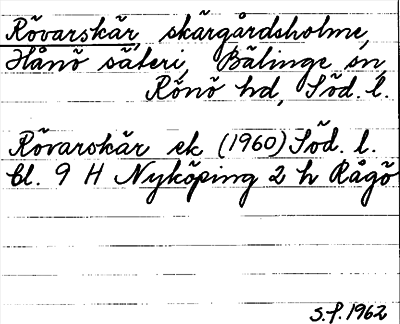 Rövarskär, skärgårdsholme,
Hånö säteri, Bälinge sn,
Rönö hd, Söd. l.
Rövarskär ek (1960) Söd. l.
bl. 9 H Nyköping 2 h Rågö
S.f. 1962